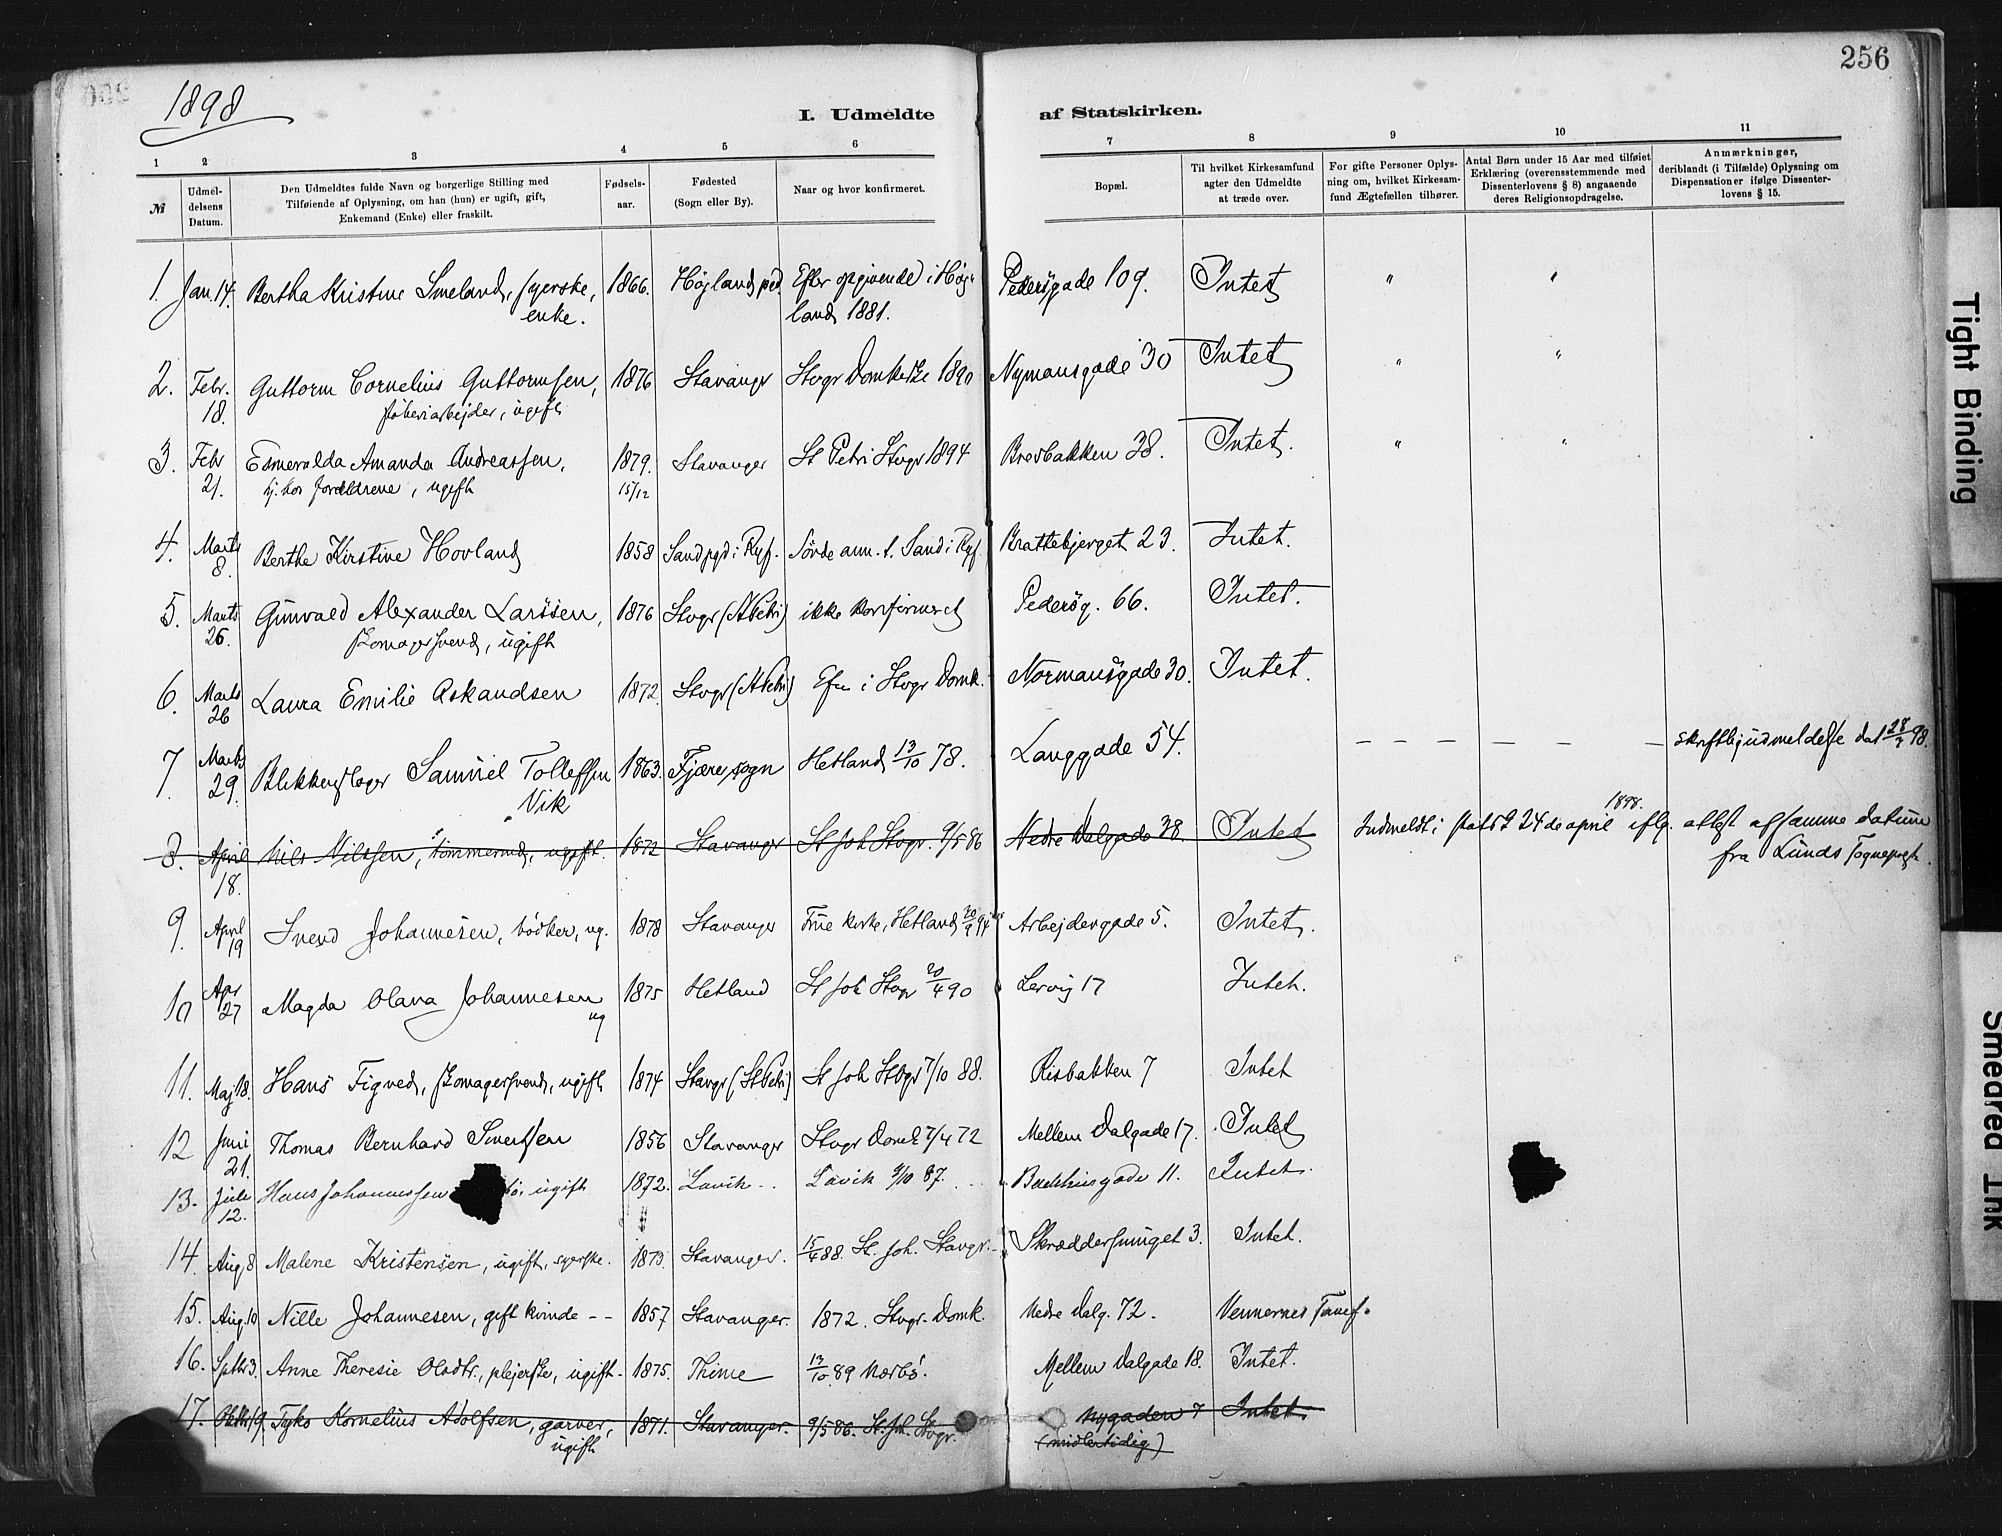 256
1898
I. Udmeldte af Statskirken.
1 2 3 4 5 6 7 8 9 10 11
№
Udmel-
delsens
Datum.
Den Udmeldtes fulde Navn og borgerlige Stilling med
Tilføiende af Oplysning, om han (hun) er ugift, gift,
Enkemand (Enke) eller fraskilt.
Fødsels-
aar.
Fødested
(Sogn eller By).
Naar og hvor konfirmeret.
Bopæl.
Til hvilket Kirkesamfund
agter den Udmeldte
at træde over.
For gifte Personer Oplys-
ning om, hvilket Kirkesam-
fund Ægtefællen tilhører.
Antal Børn under 15 Aar med tilføiet
Erklæring (overensstemmende med
Dissenterlovens § 8) angaaende
deres Religionsopdragelse.
Anmærkninger,
deriblandt (i Tilfælde) Oplysning om
Dispensationer ifølge Dissenter-
lovens § 15.
1. Jan. 14. Bertha Kristine Smeland, syerske, 1866. Højland pgd. Efter opgivende i Høj- Pedersgade 109. Intet " "
enke. land 1881.
2. Febr. Guttorm Cornelius Guttormsen, 1876 Stavanger Stvgr Domkirke 1890 Nymansgade 30 Intet " "
18. støberiarbejder, ugift
3. Febr Esmeralda Amanda Andreassen, 1879. Stavanger St Petri Stvgr 1894 Bredbakken 38. Intet. " "
21. hj. hos forældrene, ugift 15/12
4. Marts Berthe Kirstine Hovland 1858 Sand pgd i Ryf. Søvde ann. t. Sand i Ryf. Brattebjerget 23. Intet.
8.
5. Marts Gunvald Alexander Larssen, 1876 Stvgr (St Petri) ikke konfirmeret Pedersg. 66. Intet.
26. skomagersvend, ugift
6. Marts Laura Emilie Askandsen 1872 Stvgr (St Petri) i Stvgr Domk. Normansgade 30. Intet.
26
7. Marts Blikkenslager Samuel Tollefsen 1863. Fjære sogn Hetland 13/10 78. Langgade 54. — — — — — — skriftlig udmeldelse dat 28/3 98.
29. Vik
8. April Nils Nilssen, tømmermd, ugift. 1872 Stavanger St Joh Stvgr. 9/5 86 Nedre Dalgade 38. Intet Indmeldt i statsk 24de april 1898. iflg. attest af samme datum
18. fra Lunds Sogneprest.
9. April Svend Johannesen, bødker, ug. 1878 Stavanger Frue kirke, Hetland 94 Arbejdergade 5. Intet.
19
10 Apr Magda Olava Johannesen 1875 Hetland St Joh Stvgr 20/4 90 Lervig 17 Intet.
27 ug
11. Maj 18. Hans Figved, skomagersvend, ugift 1874 Stavgr (St Petri) St Joh Stvgr 7/10 88. Risbakken 7 Intet
12 Juni Thomas Bernhard Sivertsen 1856 Stavanger Stvgr Domk 7/4 72 Mellem Dalgade 17. Intet
21.
13. Juli Hans Johannessen ugift 1872. Lavik Lavik 9/10 87. Bakkegade 11. Intet.
12.
14. Aug. 8 Malene Kristensen, ugift, syerske. 1873. Stavanger. 15/4 88. St. Joh. Stavgr. Skræddersmuget 3. Intet.
15. Aug. 10 Nille Johannesen, gift kvinde -- 1857 Stavanger. 1872. Stvgr. Domk. Nedre Dalg. 72. Vennernes Samf.
16. Septbr 3. Anne Theresie Olsdtr., plejerske, ugift. 1875. Thime 13/10 89 Nærbø. Mellem Dalgade 18. Intet.
17. Oktbr 19. Tyko Kornelius Adolfsen, garver, 1871. Stavanger. 9/5 86. St. Joh. Stvgr. Nygaden 7 Intet.
ugift (midlertidig)
Tight Binding
Smeared Ink